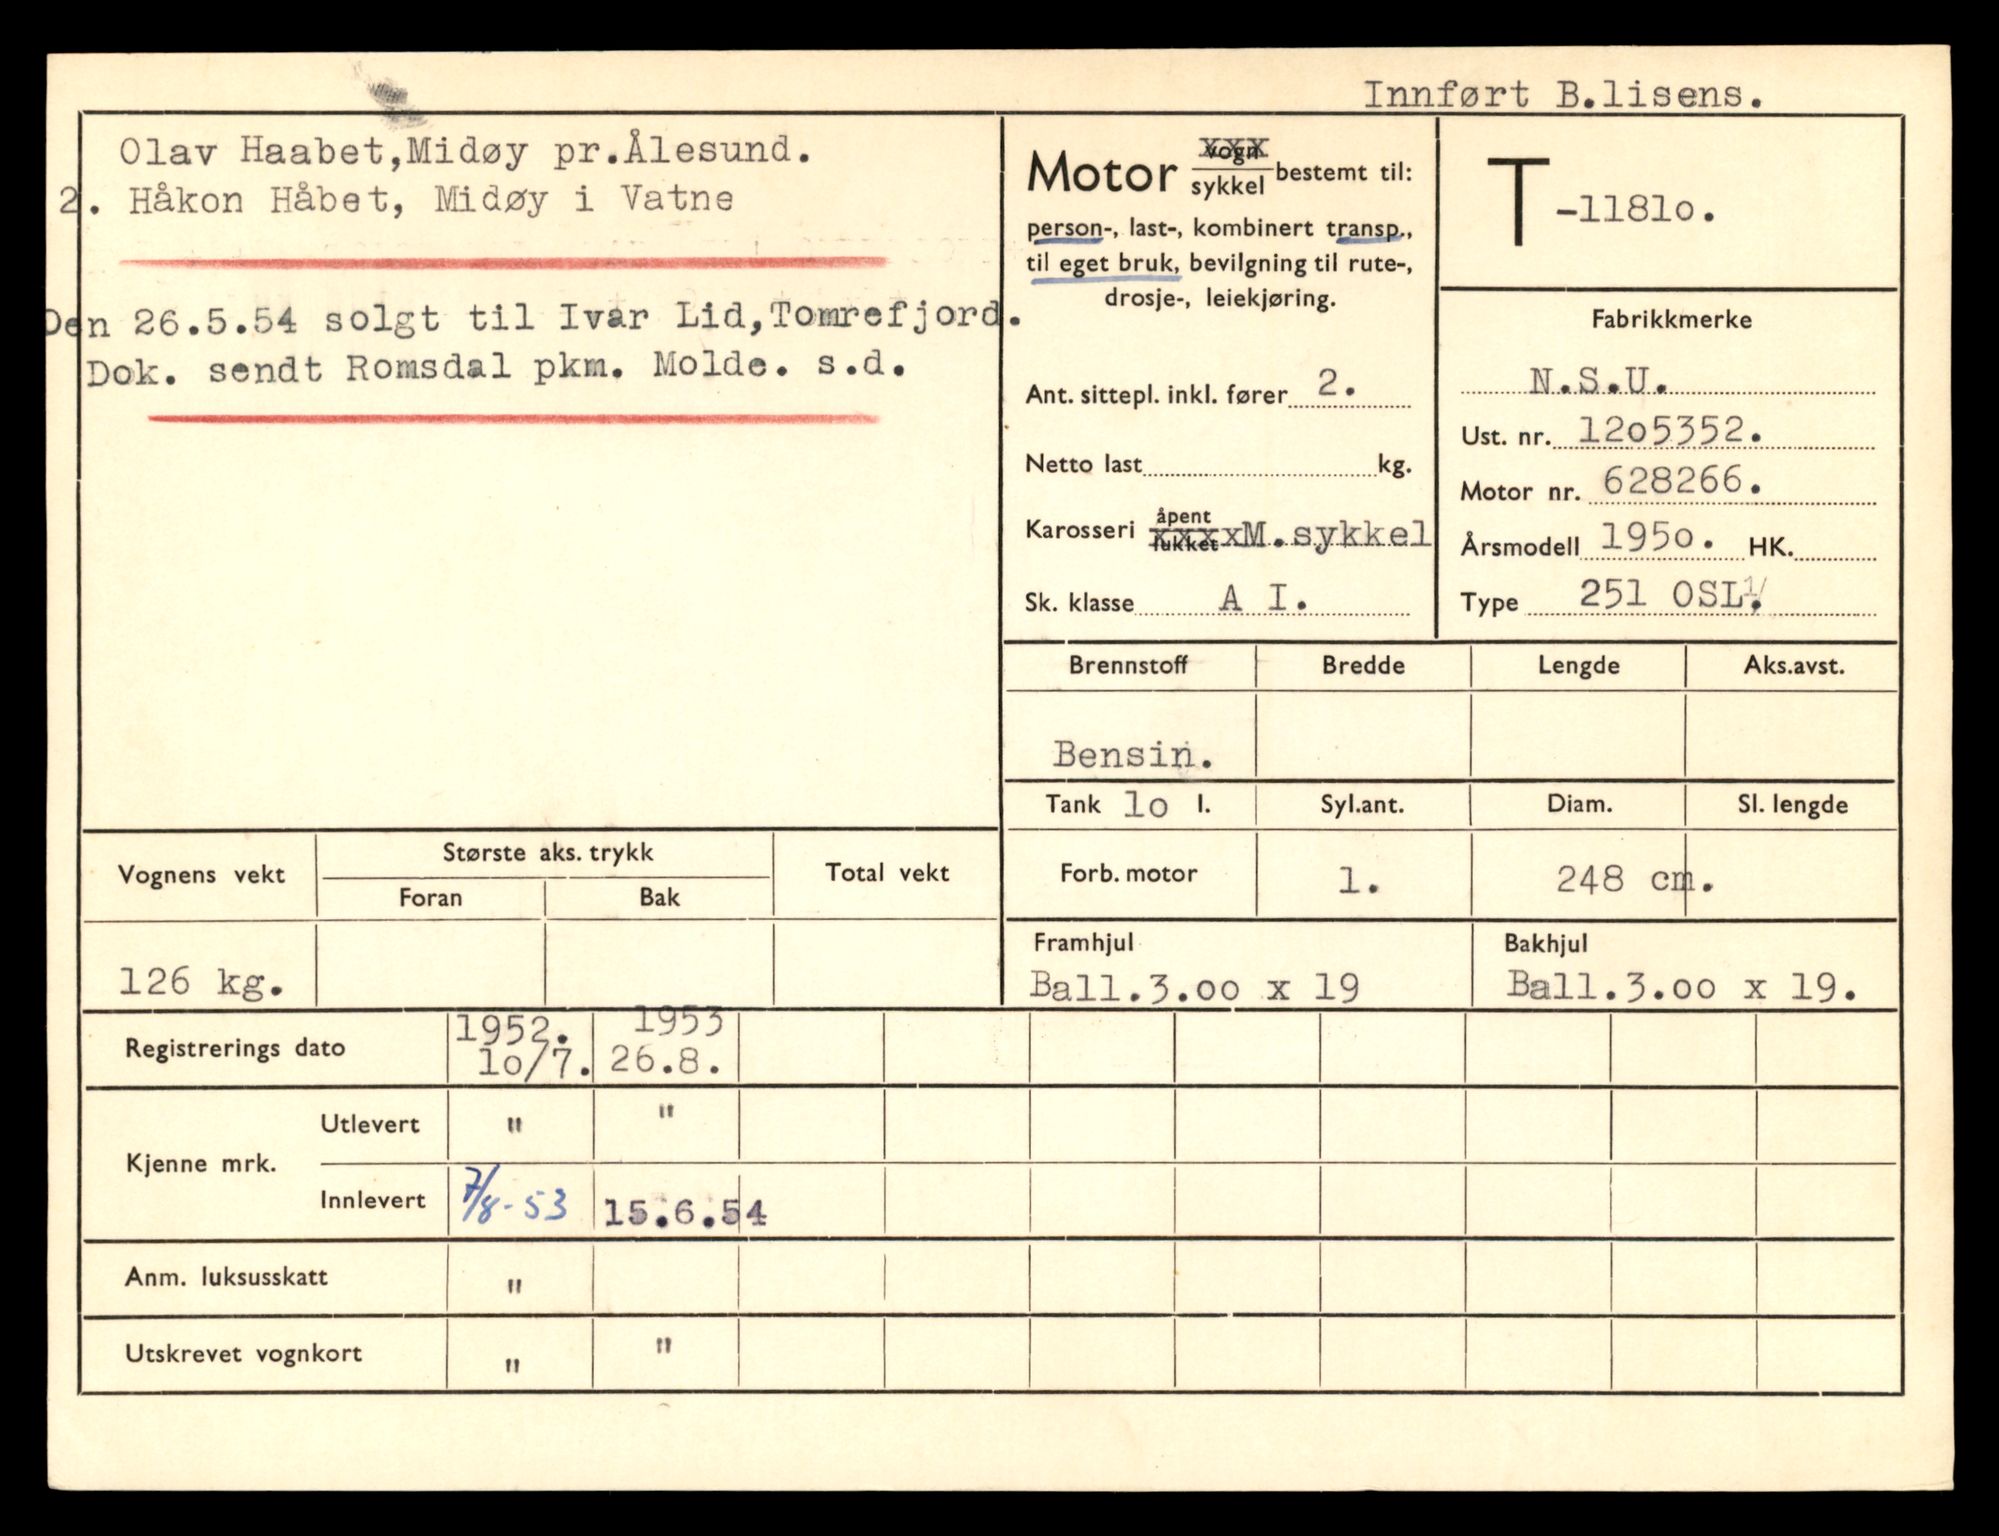 Innført B.lisens.
Olav Haabet,Midøy pr.Ålesund.
2. Håkon Håbet, Midøy i Vatne
Den 26.5.54 solgt til Ivar Lid,Tomrefjord.
Dok. sendt Romsdal pkm. Molde. s.d.
Motor vogn xxx
sykkel bestemt til:
person-, last-, kombinert transp.,
til eget bruk, bevilgning til rute-,
drosje-, leiekjøring.
Ant. sittepl. inkl. fører 2.
Netto last kg.
Karosseri åpent
lukket xxxxM.sykkel
Sk. klasse A I.
T -1181o.
Fabrikkmerke
N.S.U.
Ust. nr. 12o5352.
Motor nr. 628266.
Årsmodell 195o. HK.
Type 251 OSL.
Brennstoff Bredde Lengde Aks.avst.
Bensin.
Tank 1o l. Syl.ant. Diam. Sl. lengde
Forb. motor 1. 248 cm.
Framhjul Bakhjul
Ball.3.oo x 19 Ball.3.oo x 19.
Vognens vekt Største aks. trykk Total vekt
Foran Bak
126 kg.
Registrerings dato 1952. 1953
1o/7. 26.8.
Kjenne mrk.
Utlevert " "
Innlevert 7/8-53 15.6.54
Anm. luksusskatt "
Utskrevet vognkort " "